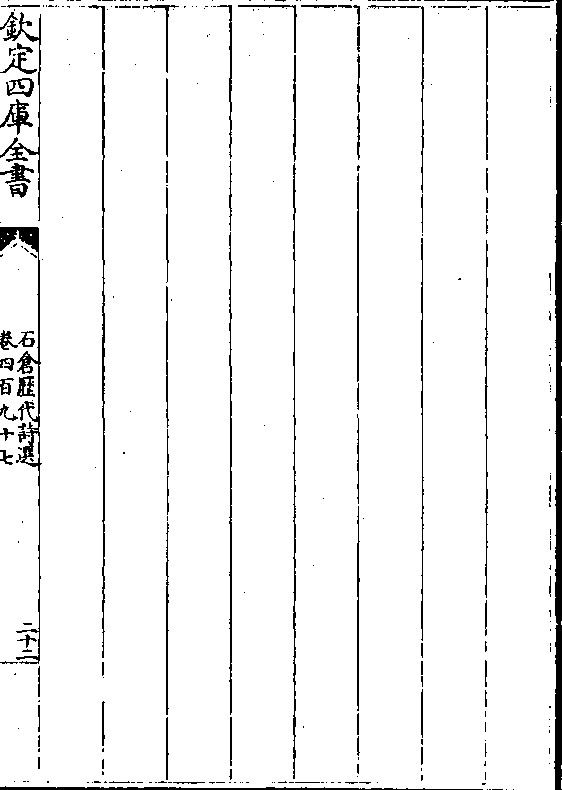 欽定四庫全書
石倉歴代詩選
卷四百九十七
二十二